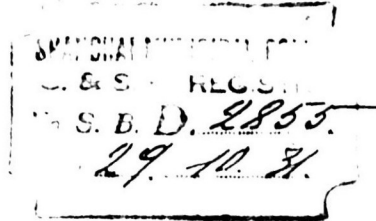 SHANGHAI MUNICIPAL
C. & S. REGIST
S. B. D. 2855.
29. 10. 31.